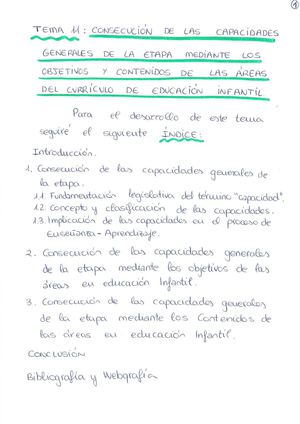 1
TEMA 11: CONSECUCIÓN DE LAS CAPACIDADES
GENERALES DE LA ETAPA MEDIANTE LOS
OBJETIVOS Y CONTENIDOS DE LAS ÁREAS
DEL CURRÍCULO DE EDUCACIÓN INFANTIL
Para el desarrollo de este tema
seguiré el siguiente ÍNDICE:
Introducción.
1. Consecución de las capacidades generales de
la etapa.
1.1. Fundamentación legislativa del término "capacidad".
1.2. Concepto y clasificación de las capacidades.
1.3. Implicación de las capacidades en el proceso de
Enseñanza - Aprendizaje.
2. Consecución de las capacidades generales
de la etapa mediante los objetivos de las
áreas en educación Infantil.
3. Consecución de las capacidades generales
de la etapa mediante los Contenidos de
las áreas en educación Infantil.
CONCLUSIÓN
Bibliografía y Webgrafía